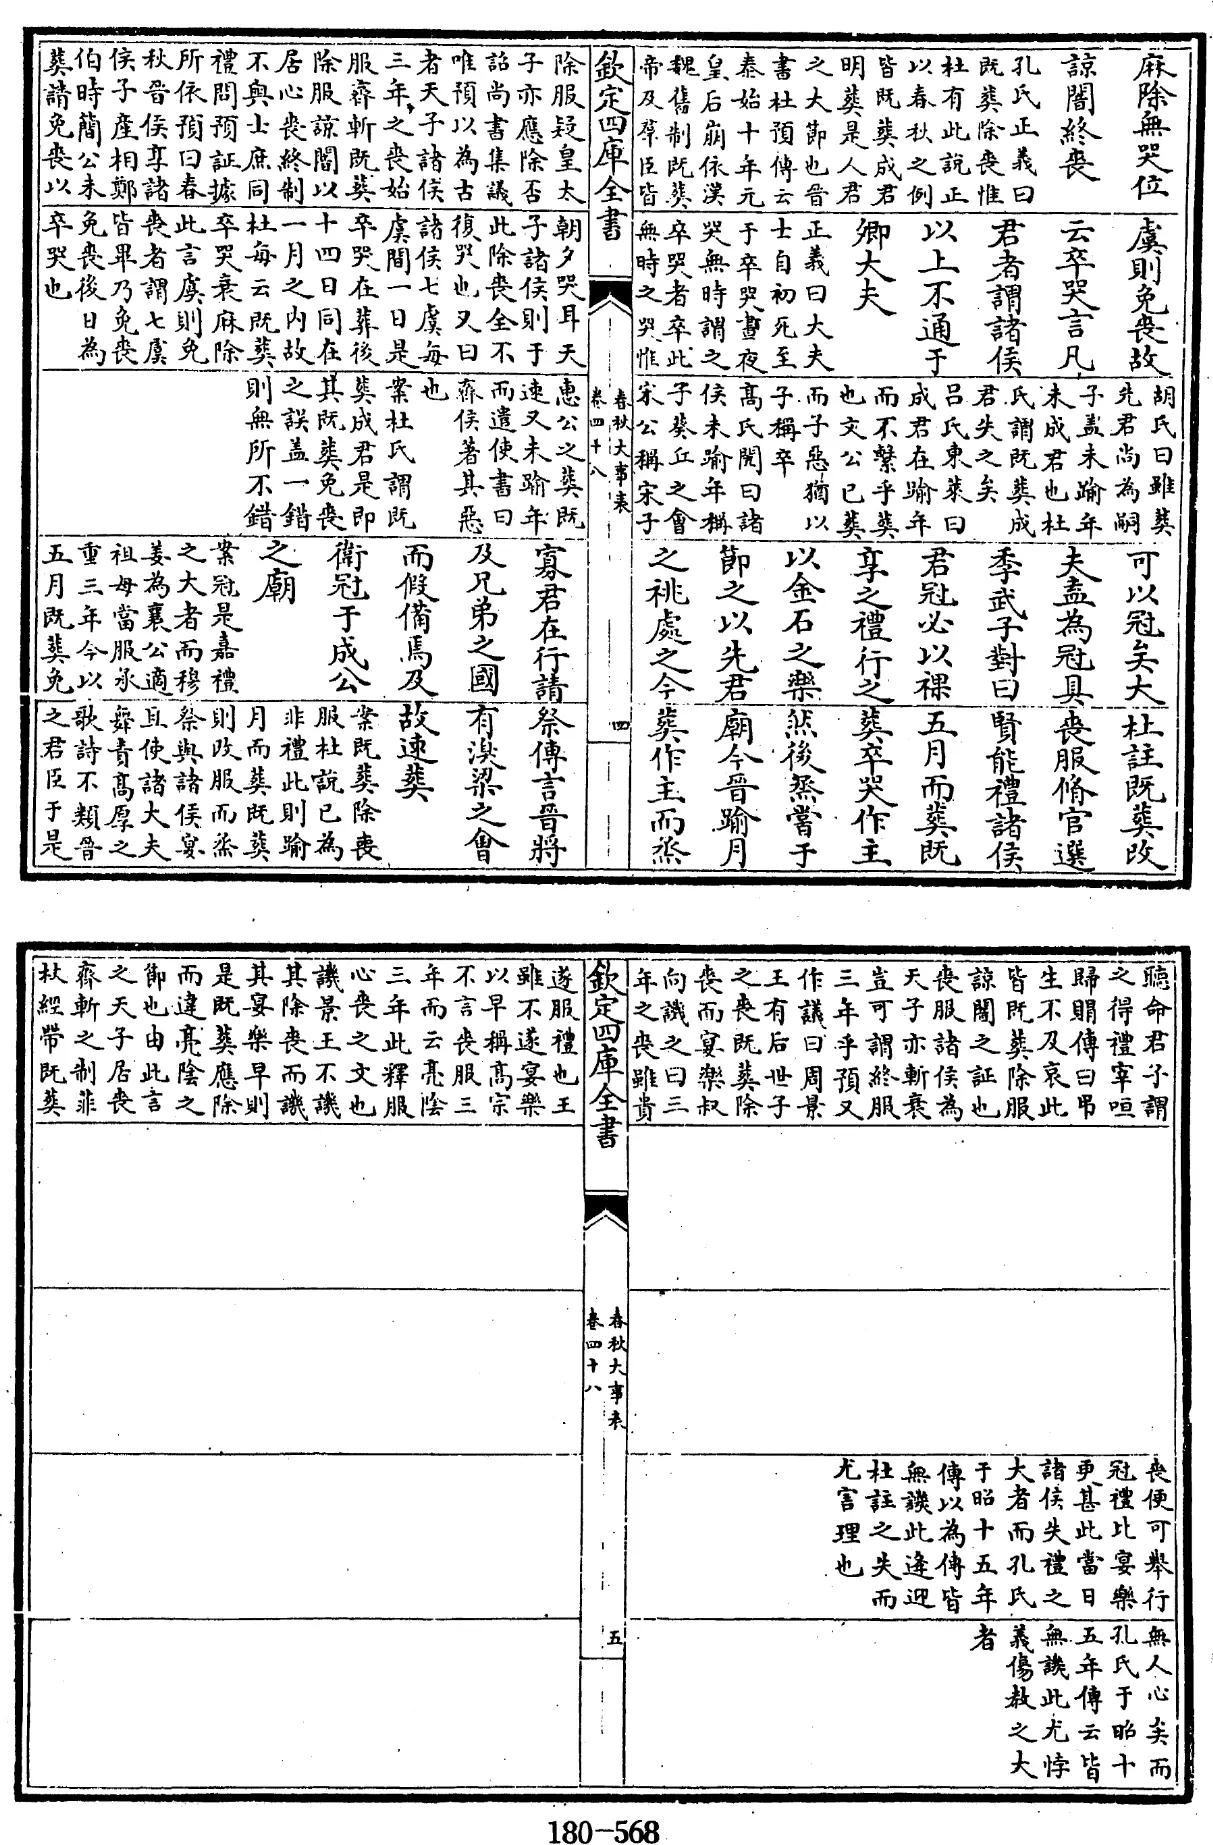 麻除無哭位
諒闇終喪
孔氏正義曰
既葬除喪惟
杜有此說正
以春秋之例
皆既葬成君
明葬是人君
之大節也晉
書杜預傳云
泰始十年元
皇后崩依漢
魏舊制既葬
帝及羣臣皆
除服疑皇太
子亦應除否
詔尚書集議
唯預以為古
者天子諸侯
三年之喪始
服齊斬既葬
除服諒闇以
居心喪終制
不與士庶同
禮問預証據
所依預曰春
秋晉侯享諸
侯子產相鄭
伯時簡公未
葬請免喪以
虞則免喪故
云卒哭言凡
君者謂諸侯
以上不通于
卿大夫
正義曰大夫
士自初死至
于卒哭晝夜
哭無時謂之
卒哭者卒此
無時之哭惟
朝夕哭耳天
子諸侯則于
此除喪全不
復哭也又曰
諸侯七虞每
虞間一日是
卒哭在葬後
十四日同在
一月之內故
杜每云既葬
卒哭衰麻除
此言虞則免
喪者謂七虞
皆畢乃免喪
免喪後日為
卒哭也
胡氏曰雖葬
先君尚為嗣
子盖未踰年
未成君也杜
氏謂既葬成
君失之矣
呂氏東萊曰
成君在踰年
而不繫乎葬
也文公已葬
而子惡猶以
子稱卒
高氏閌曰諸
侯未踰年稱
子葵丘之會
宋公稱宋子
惠公之葬既
速又未踰年
而遣使書曰
齊侯著其惡
也
案杜氏謂既
葬成君是即
其既葬免喪
之誤盖一錯
則無所不錯
可以冠矣大
夫盍為冠具
季武子對曰
君冠必以祼
享之禮行之
以金石之樂
節之以先君
之祧處之今
寡君在行請
及兄弟之國
而假備焉及
衛冠于成公
之廟
案冠是嘉禮
之大者而穆
姜為襄公適
祖母當服承
重三年今以
五月既葬免
杜註既葬改
喪服脩官選
賢能禮諸侯
五月而葬既
葬卒哭作主
然後烝嘗于
廟今晉踰月
葬作主而烝
祭傳言晉將
有湨梁之會
故速葬
案既葬除喪
服杜說已為
非禮此則踰
月而葬既葬
則改服而烝
祭與諸侯宴
且使諸大夫
舞責高厚之
歌詩不類晉
之君臣于是
欽定四庫全書
春秋大事表
卷四十八
四
聽命君子謂
之得禮宰咺
歸賵傳曰弔
生不及哀此
皆既葬除服
諒闇之証也
喪服諸侯為
天子亦斬衰
豈可謂終服
三年乎預又
作議曰周景
王有后世子
之喪既葬除
喪而宴樂叔
向譏之曰三
年之喪雖貴
遂服禮也王
雖不遂宴樂
以早稱高宗
不言喪服三
年而云亮陰
三年此釋服
心喪之文也
譏景王不譏
其除喪而譏
其宴樂早則
是既葬應除
而違亮陰之
節也由此言
之天子居喪
齊斬之制菲
杖絰帶既葬
喪便可舉行
冠禮比宴樂
更甚此當日
諸侯失禮之
大者而孔氏
于昭十五年
傳以為傳皆
無譏此逢迎
杜註之失而
尤害理也
無人心矣而
孔氏于昭十
五年傳云皆
無譏此尤悖
義傷教之大
者
欽定四庫全書
春秋大事表
卷四十八
五
180-568